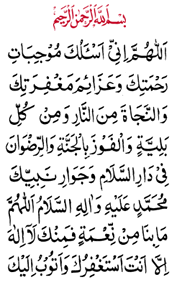 بِسْمِ اللّٰهِ الرَّحْمٰنِ الرَّحِيْمِ
اَللّٰهُمَّ اِنِّيْ اَسْئَلُكَ مُوْجِبَاتِ
رَحْمَتِكَ وَعَزَائِمَ مَغْفِرَتِكَ
وَالنَّجَاةَ مِنَ النَّارِ وَمِنْ كُلِّ
بَلِيَّةٍ وَالْفَوْزَ بِالْجَنَّةِ وَالرِّضْوَانَ
فِيْ دَارِ السَّلَامِ وَجِوَارِ نَبِيِّكَ
مُحَمَّدٍ عَلَيْهِ وَاٰلِهِ السَّلَامُ اَللّٰهُمَّ
مَا بِنَا مِنْ نِعْمَةٍ فَمِنْكَ لَا اِلٰهَ
اِلَّا اَنْتَ اَسْتَغْفِرُكَ وَاَتُوْبُ اِلَيْكَ